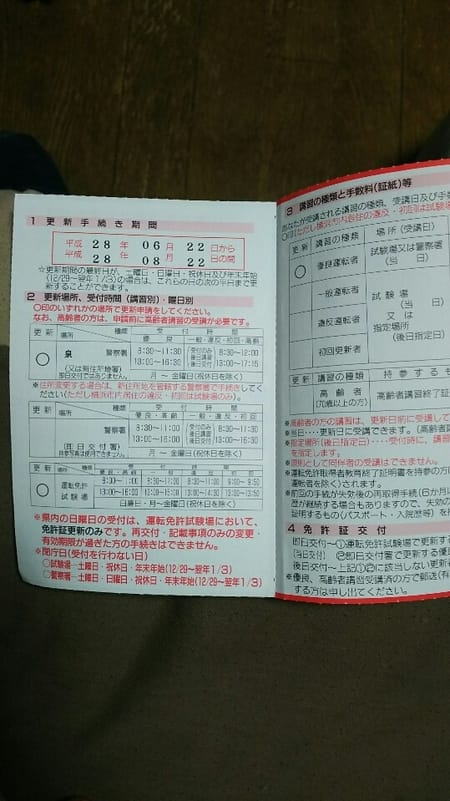 1 更新手続き期間
平成 28 年 06 月 22 日から
平成 28 年 08 月 22 日の間
☆更新期間の最終日が、土曜日・日曜日・祝休日及び年末年始
(12/29〜翌年1/3)の場合は、これらの日の次の平日まで更
新することができます。
2 更新場所、受付時間(講習別)・曜日別
○印のいずれかの場所で更新申請をしてください。
なお、高齢者の方は、申請前に高齢者講習の受講が必要です。
更新 場所 種類 受付時間
優良 一般・違反・初回・高齢
○ 泉 警察署
(又は海老名署)
8:30-11:30 受付のみ 8:30-12:00
13:00-16:30 後日講習 13:00-17:15
月〜金曜日(祝休日を除く)
※住所変更する場合は、新住所地を管轄する警察署で手続きしてく
ださい(ただし横浜市内居住の違反・初回は試験場のみ)。
更新 場所 種類 受付時間
優良・高齢 一般・違反・初回
警察署
(即日交付署)
8:30-11:00 受付のみ 8:30-11:30
13:00-16:00 後日講習 13:00-16:30
月〜金曜日(祝休日を除く)
更新 場所
○ 運転免許
試験場
日曜日・月〜金曜日(祝休日を除く)
※県内の日曜日の受付は、運転免許試験場において、
免許証更新のみです。再交付・記載事項のみの変更・
有効期限が過ぎた方の手続きはできません。
※閉庁日(受付を行わない日)
○試験場―土曜日・祝休日・年末年始(12/29〜翌年1/3)
○警察署―土曜日・日曜日・祝休日・年末年始(12/29〜翌年1/3)
3 講習の種類と手数料(証紙)等
あなたが受講される講習の種類、受講日及び手
更新 講習の種類 場所(受講日)
○ 優良運転者 試験場又は警察署
(当日)
一般運転者
違反運転者
初回更新者
試験場
(当日)
又は
指定場所
(後日指定)
更新 講習の種類 持参するも
高齢者
(70歳以上の方)
高齢者講習終了証
※高齢者の方の講習は、更新日前に受講して
※当日‥‥更新日に受講できます。(高齢者講
※指定場所(後日指定)‥‥受付時に、講習
を指定します。
※原則として同伴者の受講はできません。
※運転免許取得者教育終了証明書を持参の方は
運転者を除く)されます。
※前回の手続が失効後の再取得手続(6か月に
歴が継続する場合もありますので、失効の
証明するもの(パスポート・入院歴等)を
4 免許証交付
即日交付〜①運転免許試験場で更新する
(当日交付) ②即日交付署で更新する優
後日交付〜上記①②に該当しない更新者
※優良、高齢者講習受講済の方で郵送(有
する方は申し出てください。